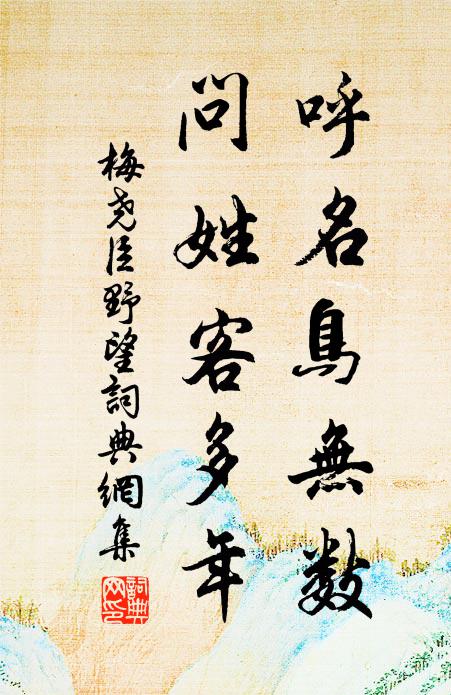 呼名鳥無數
問姓客多年
梅堯臣野望詞典網集
詞典網印